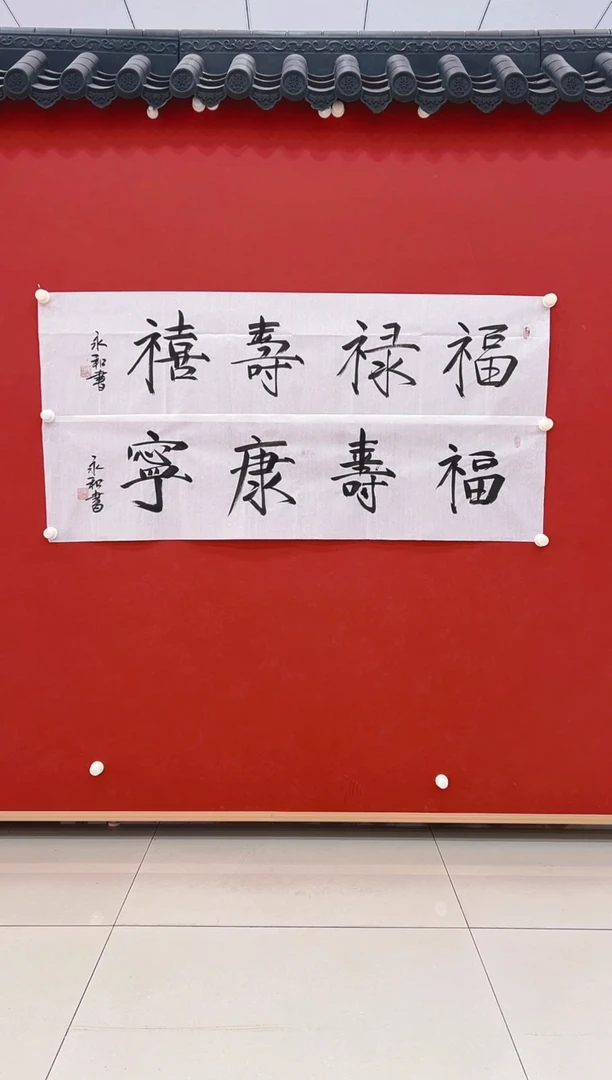 福禄壽禧
永和書
福壽康寧
永和書